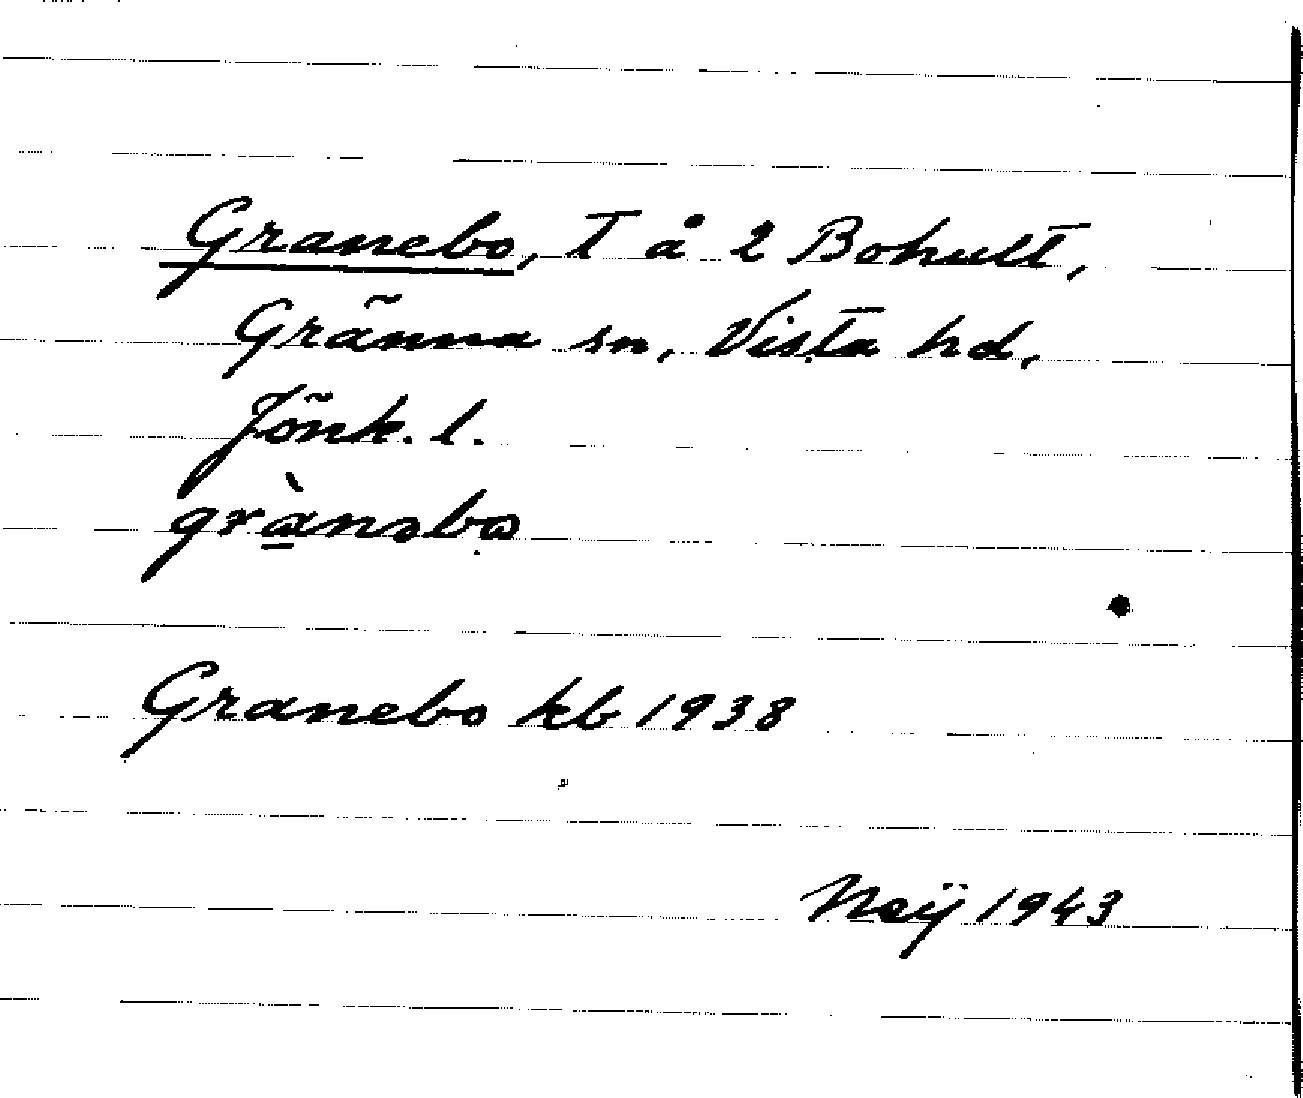 Granebo, T å 2 Bohult,
Gränna sn, Vista hd,
Jönk. l.
grà̱nəbω
Granebo kb 1938
Neÿ 1943